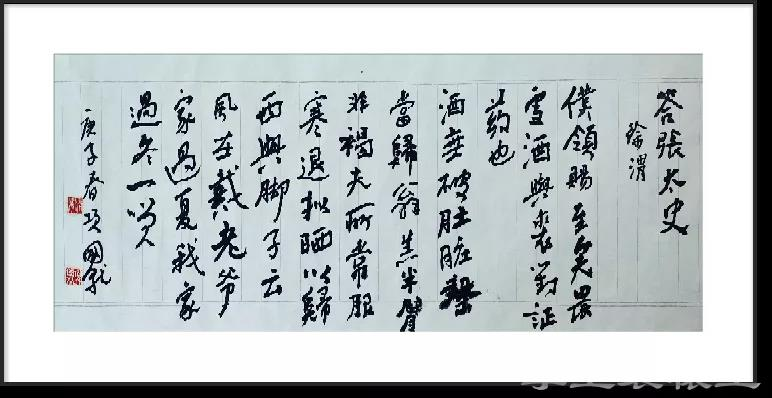 答張太史
徐渭
僕領賜至矣晨
雪酒與裘對証
药也
酒無破肚脏罄
當歸甕羔半臂
非褐夫所常服
寒退擬晒以歸
西興脚子云
風在戴老爷
家過夏我家
過冬一笑
庚子春項國